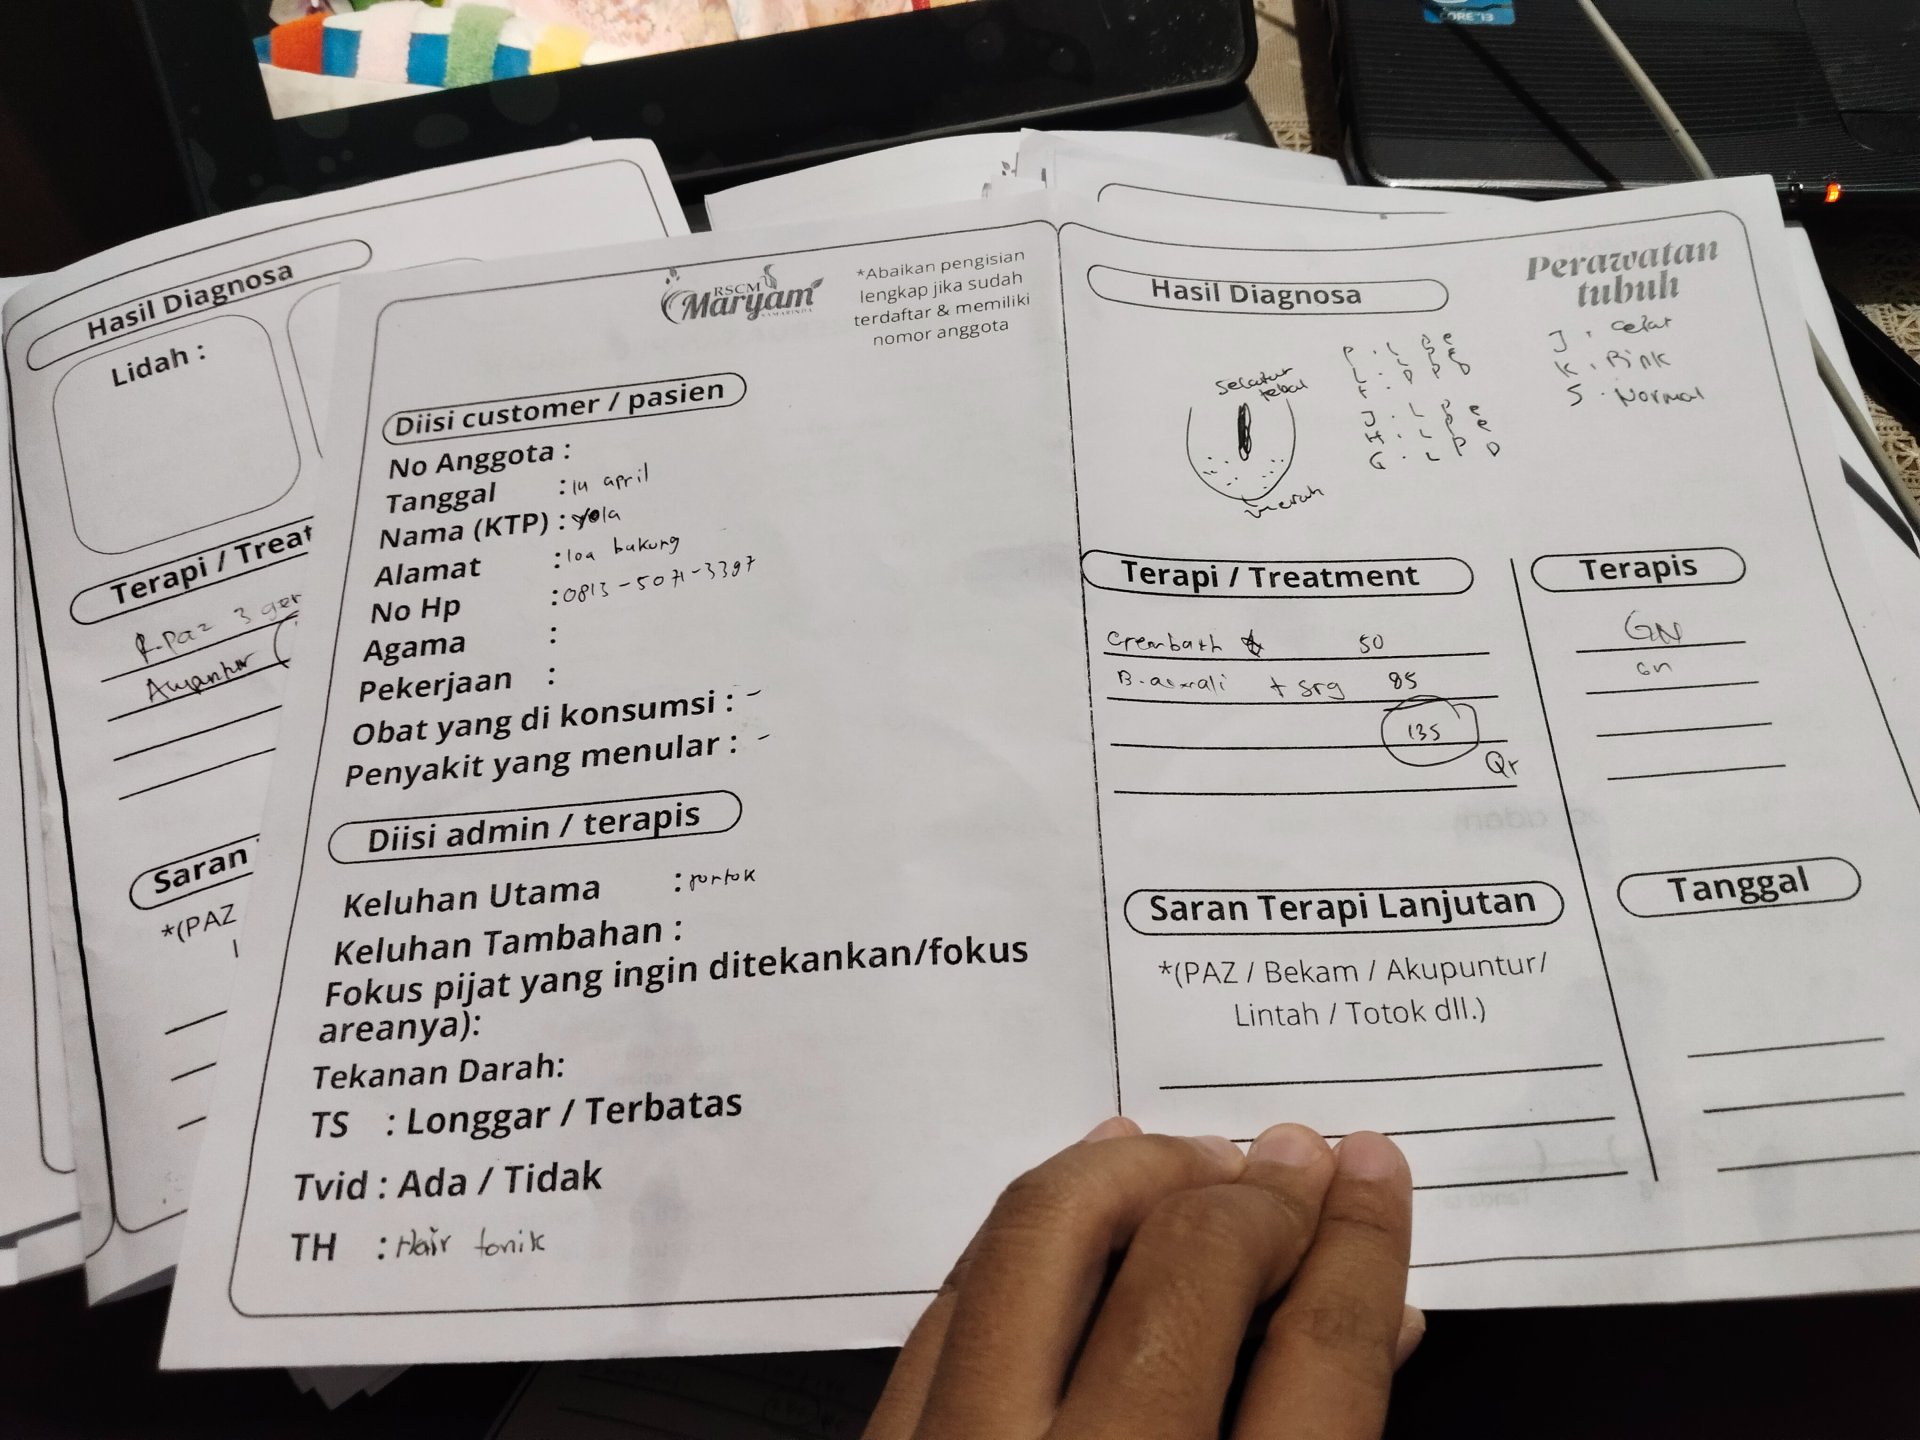 CORE i3
Hasil Diagnosa
Lidah :
Terapi / Treat
R. Paz 3 ger
Akupuntur
Saran
*(PAZ
RSCM
Maryam
SAMARINDA
*Abaikan pengisian
lengkap jika sudah
terdaftar & memiliki
nomor anggota
Diisi customer / pasien
No Anggota :
Tanggal : 14 april
Nama (KTP) : yola
Alamat : loa bakung
No Hp : 0813-5071-3397
Agama :
Pekerjaan :
Obat yang di konsumsi : -
Penyakit yang menular : -
Diisi admin / terapis
Keluhan Utama : rontok
Keluhan Tambahan :
Fokus pijat yang ingin ditekankan/fokus
areanya):
Tekanan Darah:
TS : Longgar / Terbatas
Tvid : Ada / Tidak
TH : Hair tonik
Hasil Diagnosa
Perawatan
tubuh
Selaput
tebal
merah
P . L
L . L P D
J . L P e
H . L
G . L P D
J .
K . Pink
S . Normal
Terapi / Treatment
Crembath 50
B. + srg 85
135
Qr
Terapis
GN
Gn
Saran Terapi Lanjutan
*(PAZ / Bekam / Akupuntur/
Lintah / Totok dll.)
Tanggal